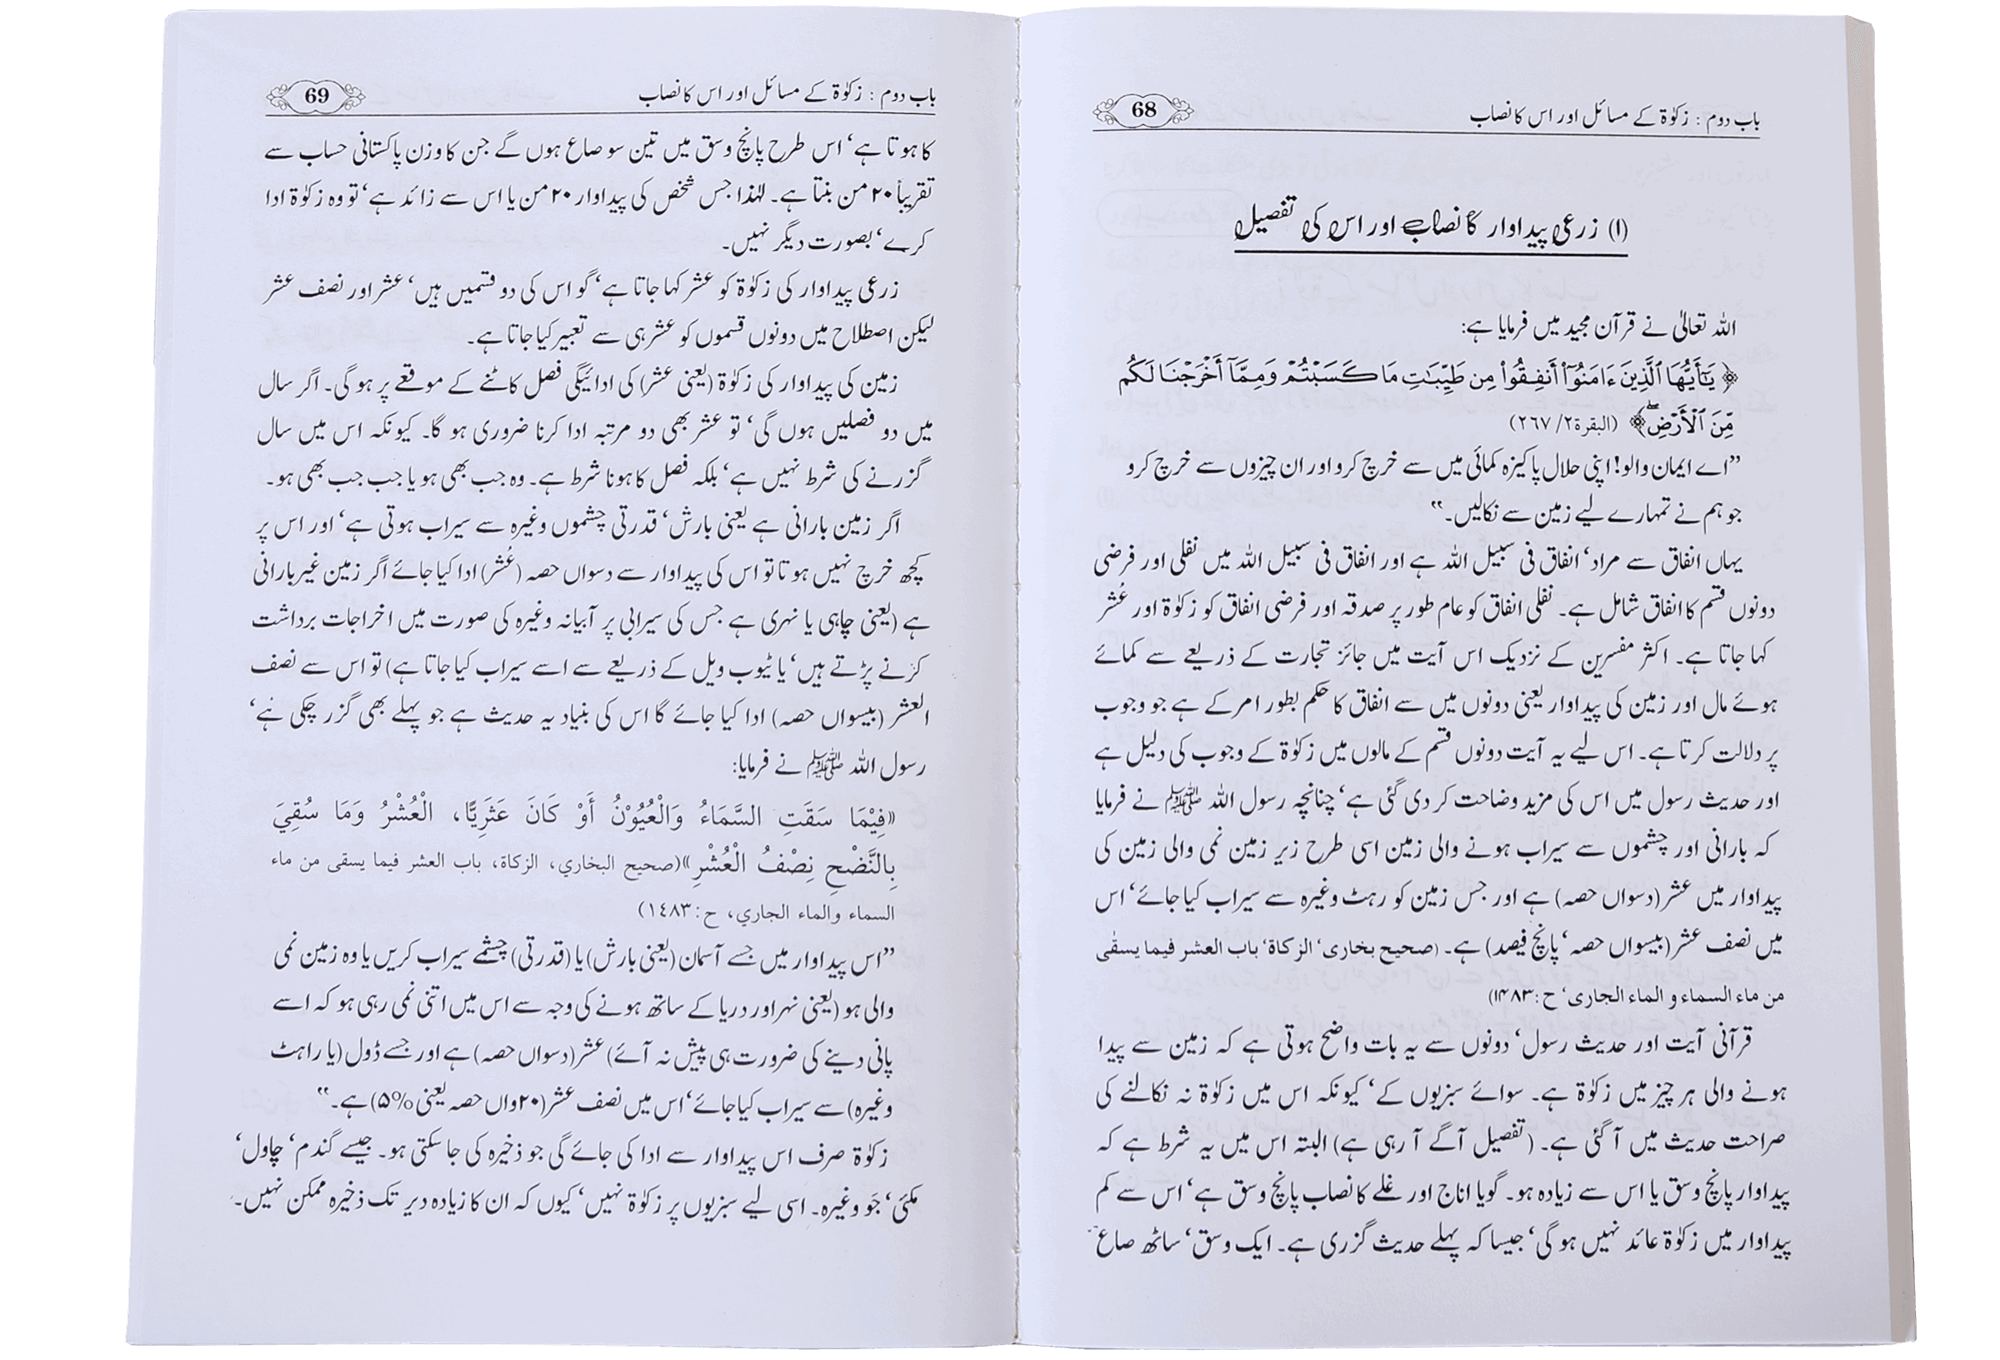 باب دوم : زکوٰۃ کے مسائل اور اس کا نصاب 68
(۱) زرعی پیداوار کا نصاب اور اس کی تفصیل
اللہ تعالیٰ نے قرآن مجید میں فرمایا ہے:
﴿يَٰٓأَيُّهَا ٱلَّذِينَ ءَامَنُوٓا۟ أَنفِقُوا۟ مِن طَيِّبَٰتِ مَا كَسَبْتُمْ وَمِمَّآ أَخْرَجْنَا لَكُم
مِّنَ ٱلْأَرْضِ ۖ﴾ (البقرة٢/ ٢٦٧)
”اے ایمان والو! اپنی حلال پاکیزہ کمائی میں سے خرچ کرو اور ان چیزوں سے خرچ کرو
جو ہم نے تمہارے لیے زمین سے نکالیں۔“
یہاں انفاق سے مراد‘ انفاق فی سبیل اللہ ہے اور انفاق فی سبیل اللہ میں نفلی اور فرضی
دونوں قسم کا انفاق شامل ہے۔ نفلی انفاق کو عام طور پر صدقہ اور فرضی انفاق کو زکوٰۃ اور عُشر
کہا جاتا ہے۔ اکثر مفسرین کے نزدیک اس آیت میں جائز تجارت کے ذریعے سے کمائے
ہوئے مال اور زمین کی پیداوار یعنی دونوں میں سے انفاق کا حکم بطور امر کے ہے جو وجوب
پر دلالت کرتا ہے۔ اس لیے یہ آیت دونوں قسم کے مالوں میں زکوٰۃ کے وجوب کی دلیل ہے
اور حدیث رسول میں اس کی مزید وضاحت کر دی گئی ہے‘ چنانچہ رسول اللہ ﷺ نے فرمایا
کہ بارانی اور چشموں سے سیراب ہونے والی زمین اسی طرح زیر زمین نمی والی زمین کی
پیداوار میں عشر (دسواں حصہ) ہے اور جس زمین کو رہٹ وغیرہ سے سیراب کیا جائے‘ اس
میں نصف عشر (بیسواں حصہ‘ پانچ فیصد) ہے۔ (صحیح بخاری‘ الزکاة‘ باب العشر فیما یسقٰی
من ماء السماء و الماء الجاری‘ ح:۱۴۸۳)
قرآنی آیت اور حدیث رسول‘ دونوں سے یہ بات واضح ہوتی ہے کہ زمین سے پیدا
ہونے والی ہر چیز میں زکوٰۃ ہے۔ سوائے سبزیوں کے‘ کیونکہ اس میں زکوٰۃ نہ نکالنے کی
صراحت حدیث میں آ گئی ہے۔ (تفصیل آگے آ رہی ہے) البتہ اس میں یہ شرط ہے کہ
پیداوار پانچ وسق یا اس سے زیادہ ہو۔ گویا اناج اور غلے کا نصاب پانچ وسق ہے‘ اس سے کم
پیداوار میں زکوٰۃ عائد نہیں ہو گی‘ جیسا کہ پہلے حدیث گزری ہے۔ ایک وسق‘ ساٹھ صاع
باب دوم : زکوٰۃ کے مسائل اور اس کا نصاب 69
کا ہوتا ہے‘ اس طرح پانچ وسق میں تین سو صاع ہوں گے جن کا وزن پاکستانی حساب سے
تقریباً ۲۰ من بنتا ہے۔ لہٰذا جس شخص کی پیداوار ۲۰ من یا اس سے زائد ہے‘ تو وہ زکوٰۃ ادا
کرے‘ بصورت دیگر نہیں۔
زرعی پیداوار کی زکوٰۃ کو عشر کہا جاتا ہے‘ گو اس کی دو قسمیں ہیں‘ عشر اور نصف عشر
لیکن اصطلاح میں دونوں قسموں کو عشر ہی سے تعبیر کیا جاتا ہے۔
زمین کی پیداوار کی زکوٰۃ (یعنی عشر) کی ادائیگی فصل کاٹنے کے موقعے پر ہو گی۔ اگر سال
میں دو فصلیں ہوں گی‘ تو عشر بھی دو مرتبہ ادا کرنا ضروری ہو گا۔ کیونکہ اس میں سال
گزرنے کی شرط نہیں ہے‘ بلکہ فصل کا ہونا شرط ہے۔ وہ جب بھی ہو یا جب جب بھی ہو۔
اگر زمین بارانی ہے یعنی بارش‘ قدرتی چشموں وغیرہ سے سیراب ہوتی ہے‘ اور اس پر
کچھ خرچ نہیں ہوتا تو اس کی پیداوار سے دسواں حصہ (عُشر) ادا کیا جائے اگر زمین غیر بارانی
ہے (یعنی چاہی یا نہری ہے جس کی سیرابی پر آبیانہ وغیرہ کی صورت میں اخراجات برداشت
کرنے پڑتے ہیں‘ یا ٹیوب ویل کے ذریعے سے اسے سیراب کیا جاتا ہے) تو اس سے نصف
العشر (بیسواں حصہ) ادا کیا جائے گا اس کی بنیاد یہ حدیث ہے جو پہلے بھی گزر چکی ہے‘
رسول اللہ ﷺ نے فرمایا:
«فِيْمَا سَقَتِ السَّمَاءُ وَالْعُيُوْنُ أَوْ كَانَ عَثَرِيًّا، الْعُشْرُ وَمَا سُقِيَ
بِالنَّضْحِ نِصْفُ الْعُشْرِ»(صحيح البخاري، الزكاة، باب العشر فيما يسقى من ماء
السماء والماء الجاري، ح:١٤٨٣)
”اس پیداوار میں جسے آسمان (یعنی بارش) یا (قدرتی) چشمے سیراب کریں یا وہ زمین نمی
والی ہو (یعنی نہر اور دریا کے ساتھ ہونے کی وجہ سے اس میں اتنی نمی رہی ہو کہ اسے
پانی دینے کی ضرورت ہی پیش نہ آئے) عشر (دسواں حصہ) ہے اور جسے ڈول (یا راہٹ
وغیرہ) سے سیراب کیا جائے‘ اس میں نصف عشر (۲۰واں حصہ یعنی ۵%) ہے۔“
زکوٰۃ صرف اس پیداوار سے ادا کی جائے گی جو ذخیرہ کی جا سکتی ہو۔ جیسے گندم‘ چاول‘
مکئی‘ جَو وغیرہ۔ اسی لیے سبزیوں پر زکوٰۃ نہیں‘ کیوں کہ ان کا زیادہ دیر تک ذخیرہ ممکن نہیں۔